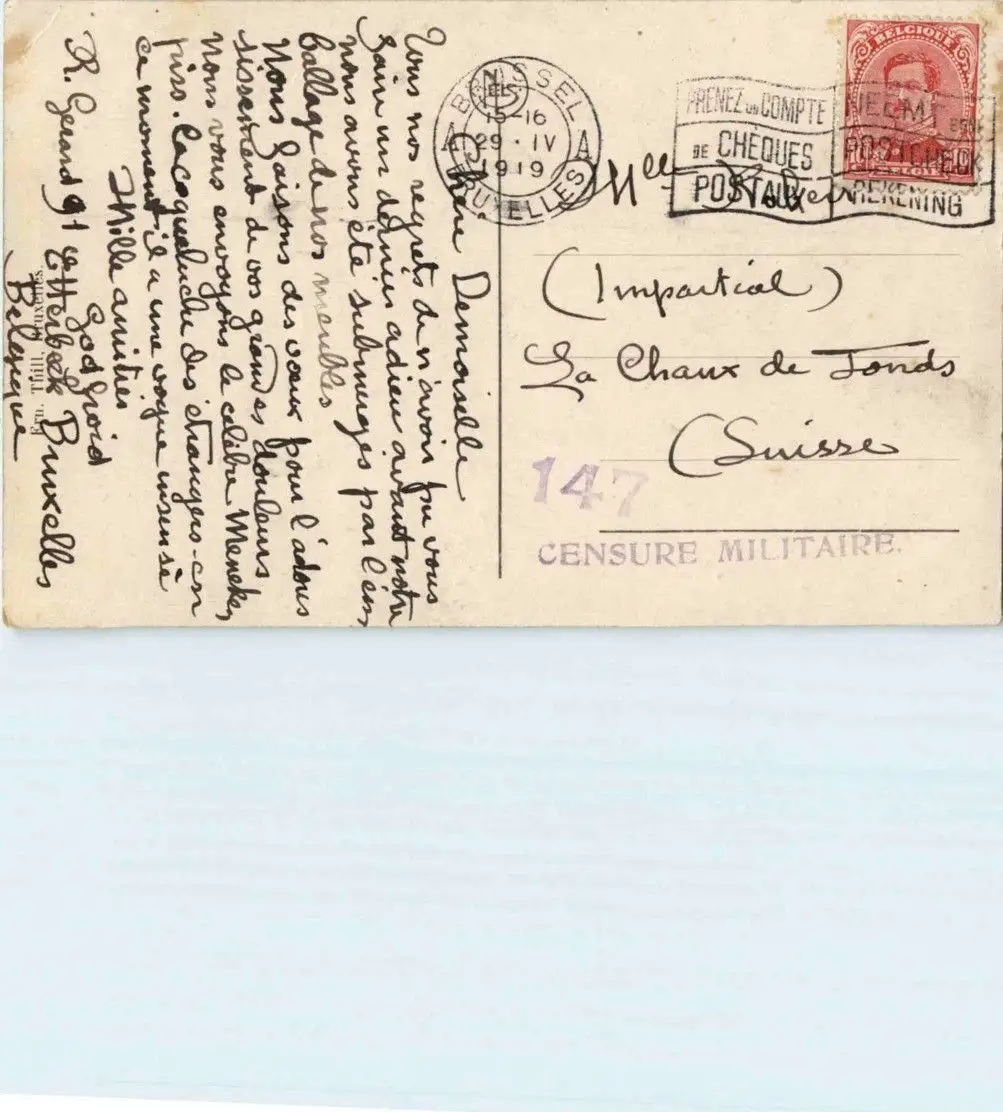 Chère Demoiselle
Tous nos regrets de n'avoir pu vous
faire un dernier adieu avant notre
nous avons été submergés par l'em
ballage de nos meubles
Nous faisons des vœux pour l'adous
sissement de vos grandes douleurs
Nous vous envoyons le célèbre Meneken
piss. La coqueluche des étrangers - en
ce moment il a une vogue insensée
Mille amitiés
Godfroid
R. Gerard 91 Etterbeek Bruxelles
Belgique
BRUSSEL
15-16
29 · IV
1919
A A
BRUXELLES
PRENEZ UN COMPTE
DE CHÈQUES
POSTAUX
NEEMT EENE
POSTCHECK
REKENING
BELGIQUE
Mlle
(Impartial)
La Chaux de Fonds
(Suisse
147
CENSURE MILITAIRE.